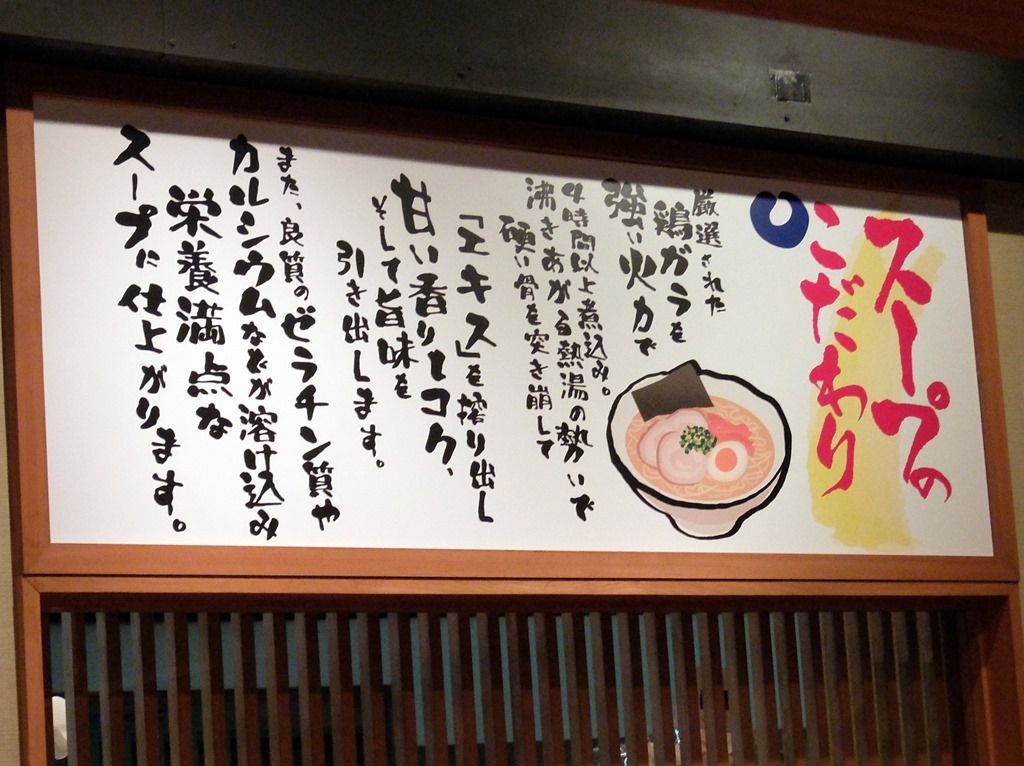 スープの
こだわり
厳選された
鶏ガラを
強い火力で
4時間以上煮込み。
沸きあがる熱湯の勢いで
硬い骨を突き崩して
「エキス」を搾り出し
甘い香りとコク、
そして旨味を
引き出します。
また、良質のゼラチン質や
カルシウムなどが溶け込み
栄養満点な
スープに仕上がります。